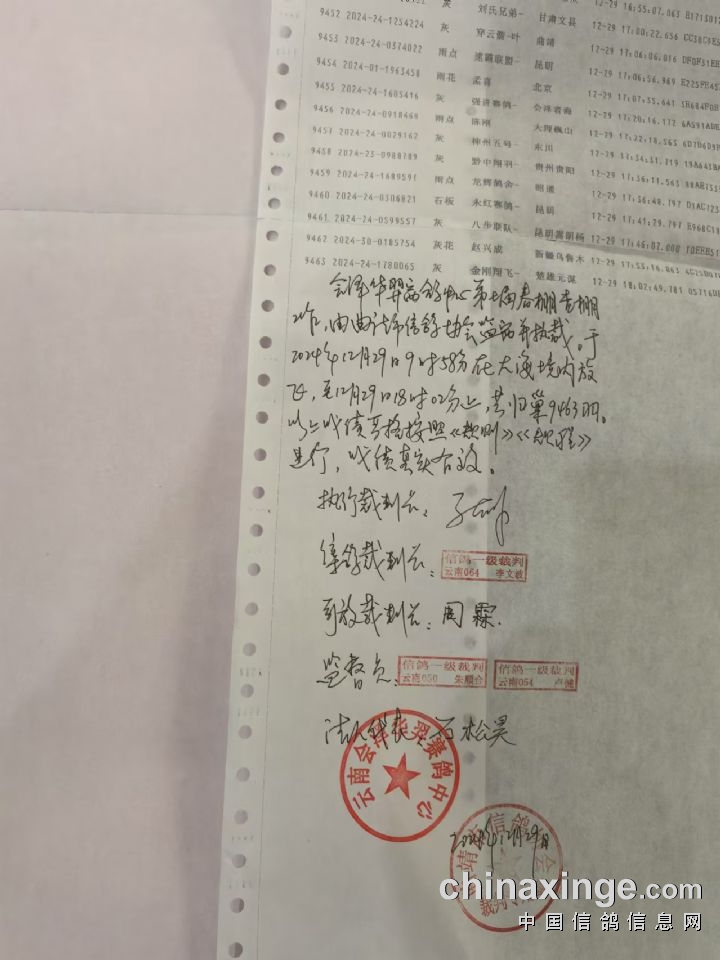 刘氏兄弟- 甘肃文县 12-29 16:55:07.063
9452 2024-24-1254224 灰 穿云箭-叶 曲靖 12-29 17:00:22.656
9453 2024-24-0374022 雨点 速霸联盟- 昆明 12-29 17:06:06.016
9454 2024-01-1963458 雨花 孟喜 北京 12-29 17:06:56.969
9455 2024-24-1605416 灰 强进赛鸽- 会泽者海 12-29 17:07:55.641
9456 2024-24-0918468 雨点 陈刚 大理巍山 12-29 17:20:16.172
9457 2024-24-0029162 灰 神州五号- 东川 12-29 17:22:18.565
9458 2024-23-0988789 灰 黔中翔羽- 贵州贵阳 12-29 17:34:51.719
9459 2024-24-1689591 雨点 龙辉鸽舍- 昭通 12-29 17:36:11.563
9460 2024-24-0306821 石板 永红赛鸽- 昆明 12-29 17:36:48.797
9461 2024-24-0599557 灰 八步联队- 昆明嵩明杨 12-29 17:41:29.797
9462 2024-30-0185754 灰花 赵兴成 新疆乌鲁木 12-29 17:46:07.000
9463 2024-24-1780065 灰 金刚翔飞- 楚雄元谋 12-29 17:55:16.063
12-29 18:02:49.781
会泽华翼赛鸽中心第七届春棚查棚
工作，由曲靖市信鸽协会监督并执裁。于
2024年12月29日9时58分在大海境内放
飞，至12月29日18时02分止，共归巢9463羽。
以上成绩严格按照《规则》《规程》
进行，成绩真实有效。
执行裁判长：
集鸽裁判长：
信鸽一级裁判
云南064 李文敏
司放裁判长：周霖
监督员：
信鸽一级裁判
云南050 朱顺合
信鸽一级裁判
云南054 卢健
法人代表：石松昊
云南会泽华翼赛鸽中心
2024年12月29日
chinaxinge.com
中国信鸽信息网